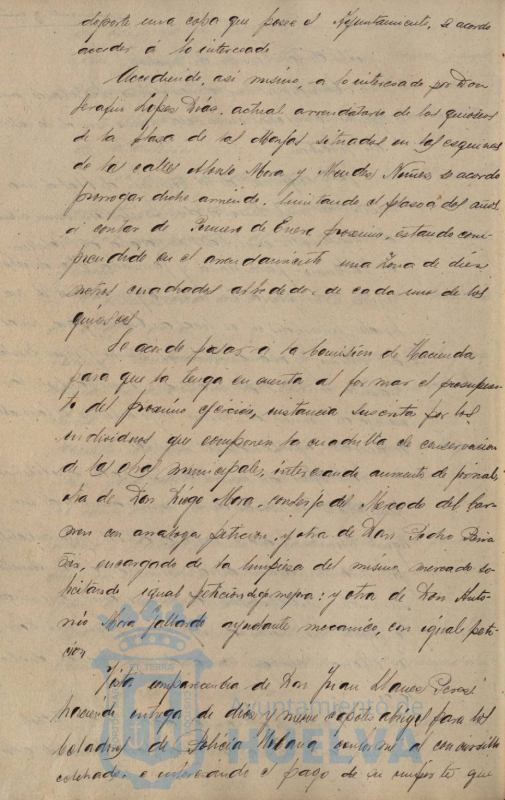 deporte una copa que posee el Ayuntamiento, se acordo
acceder á lo interesado
Accediendo, así mismo, a lo interesado por Don
Serafin Lopez Diaz, actual arrendatario de los quioscos
de la plaza de las Monjas situados en las esquinas
de las calles Alonso Mora y Mendez Nuñez se acordo
prorrogar dicho arriendo, limitando el plazo á dos años
á contar de Primero de Enero proximo, estando com-
prendido en el arrendamiento una zona de diez
metros cuadrados alrededor de cada uno de los
quioscos
Se acordo pasar á la Comision de Hacienda
para que la tenga en cuenta al formar el presupues-
to del proximo ejercicio, instancia suscrita por los
individuos que componen la cuadrilla de conservacion
de las obras municipales, interesando aumento de jornales,
otra de Don Diego Mora, conserje del Mercado del Car-
men con analoga peticion, y otra de Don Pedro
encargado de la limpieza del mismo mercado so-
licitando igual peticion : y otra de Don Anto-
nio Mora Gallardo ayudante mecanico, con igual peti-
cion
Vista comparecencia de Don Juan Llanes
haciendo entrega de diez y nueve capotes abrigo para los
de Policia Urbana, conforme al concursillo
celebrado, e interesando el pago de su importe que
Ayuntamiento de
HUELVA